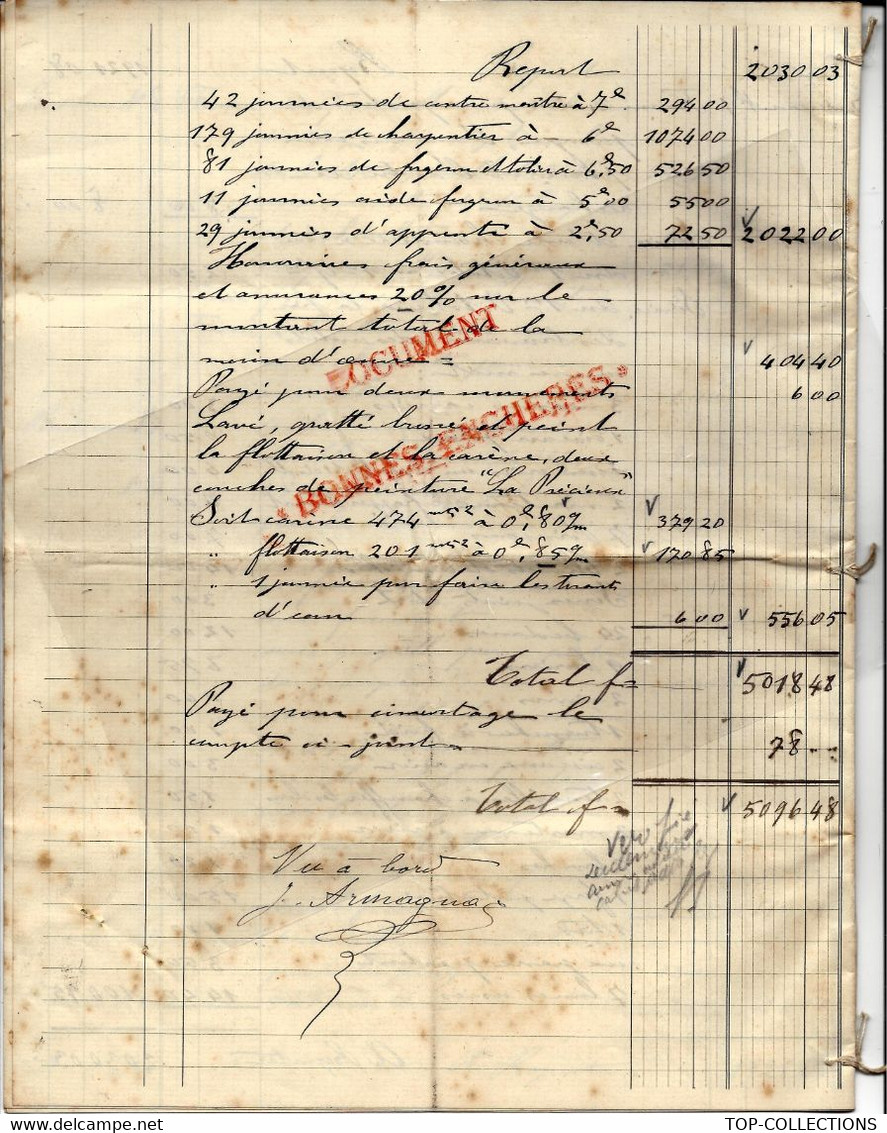 Report 203003
42 journées de contre maître à 7f 29400
179 journées de charpentier à 6f 107400
81 journées de forgeron et tolier à 6f,50 52650
11 journées aide forgeron à 5f00 5500
29 journées d'apprenti à 2f,50 7250 202200
Honoraires frais généraux
et assurances 20% sur le
montant total de la
main d'œuvre = 40440
Payé pour deux mouvements 600
Lavé, gratté brossé et peint
la flottaison et la carène, deux
couches de peinture "La Précieuse"
Soit carène 474 mts2 à 0f,80 qm 37920
" flottaison 201 mts2 à 0f,85 qm 17085
" 1 journée pour faire les tirants
d'eau 600 55605
Total f= 501848
Payé pour cimentage le
compte ci-joint 78 ---
Total f= 509648
Vu à bord
J. Armagnac
DOCUMENT
* BONNES-ENCHERES *
TOP-COLLECTIONS